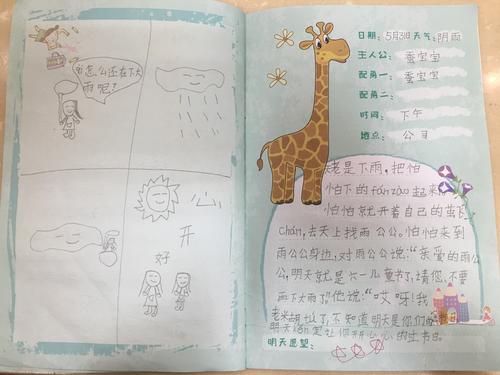 怎么还在下大
雨呢?
心
开
好
日期: 5月31 天气: 阴雨
主人公: 蚕宝宝
配角一: 蚕宝宝
配角二:
时间: 下午
地点: 公司
老是下雨,把怕
怕下的fán zào起来
怕怕就开着自己的茧飞
chán,去天上找雨公公。怕怕来到
雨公公身边,对雨公公说:“亲爱的雨公
公,明天就是六一儿童节了,请您不要
再下大雨了”他说:“哎呀!我
老糊塗了,不知道明天是你们的节日
明天
明天愿望: